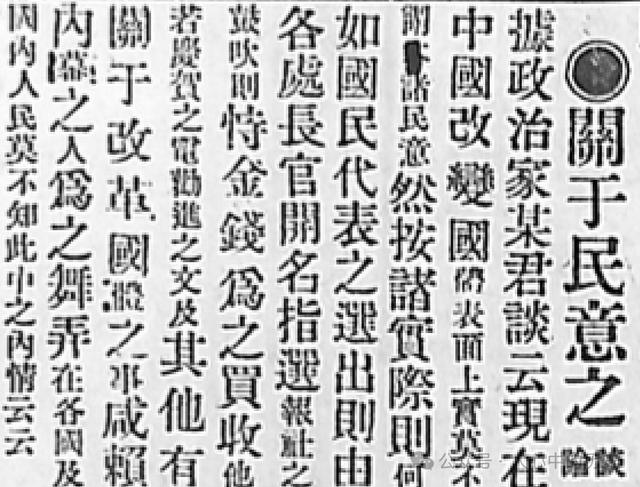 關于民意之談論
據政治家某君談云現在
中國改變國體表面上實莫不
諸民意然按諸實際則何
如國民代表之選出則由
各處長官開名指選報社之
鼓吹則恃金錢為之買收他
若慶賀之電勸進之文及其他有
關于改革國體之事咸賴
內幕之人為之舞弄在各國及
國內人民莫不知此中之內情云云
公众号